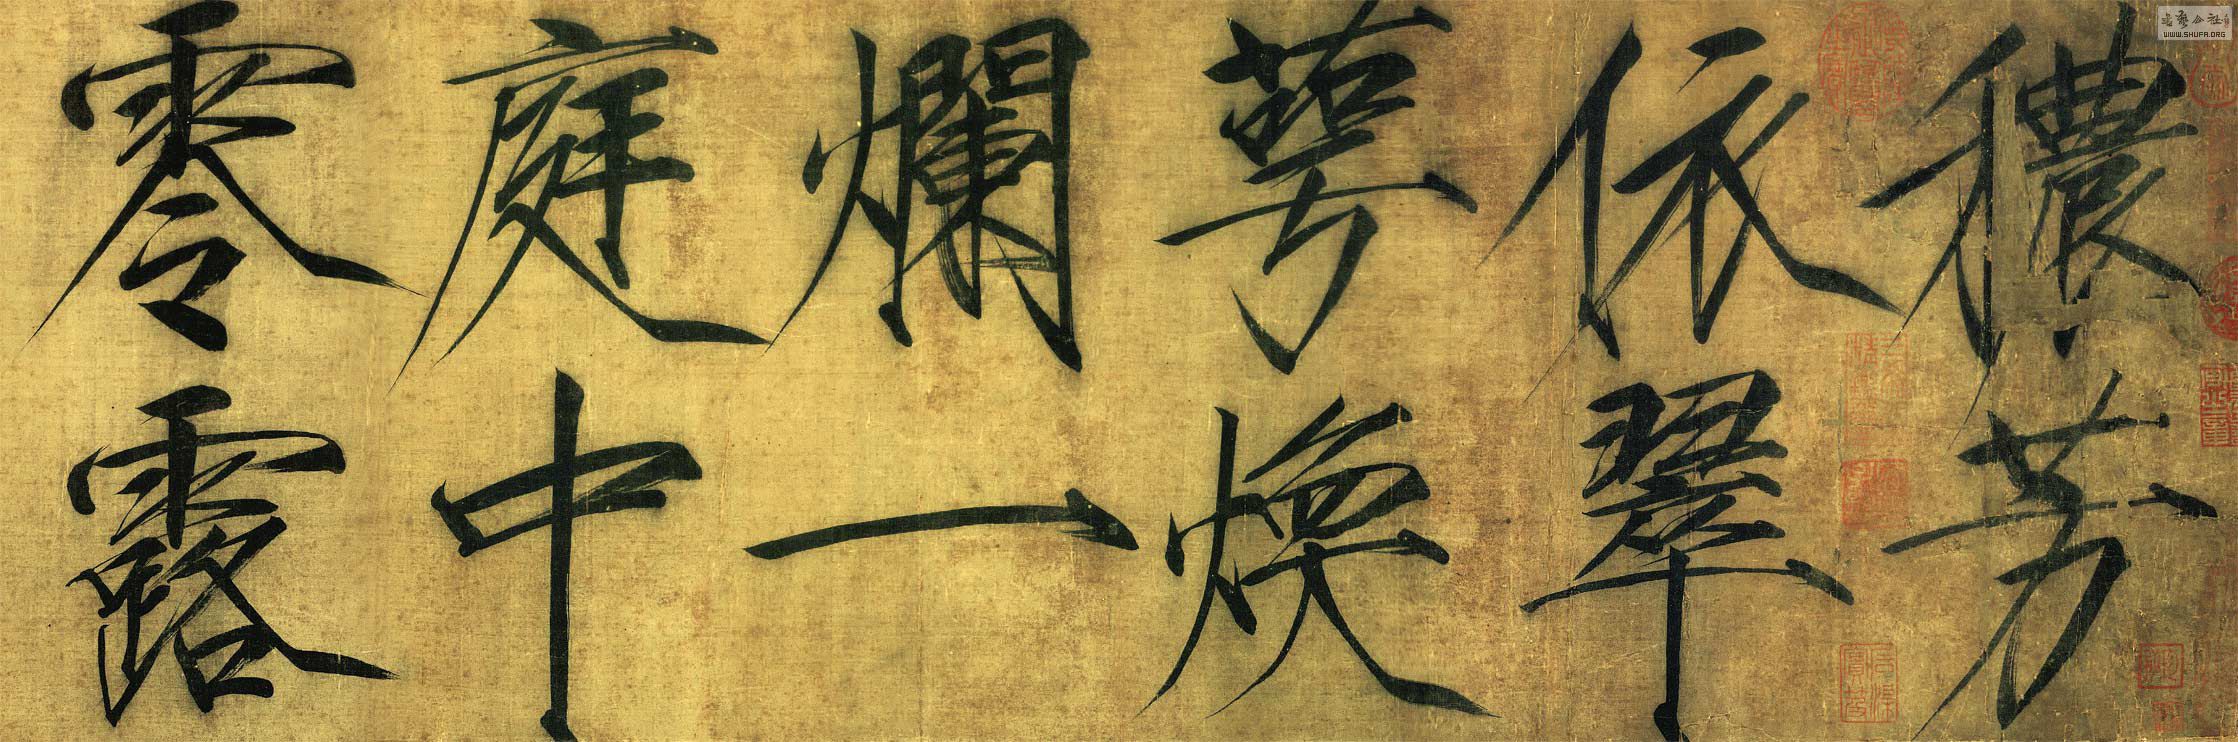 穠芳
依翠
萼煥
爛一
庭中
零露
WWW.SHUFA.ORG